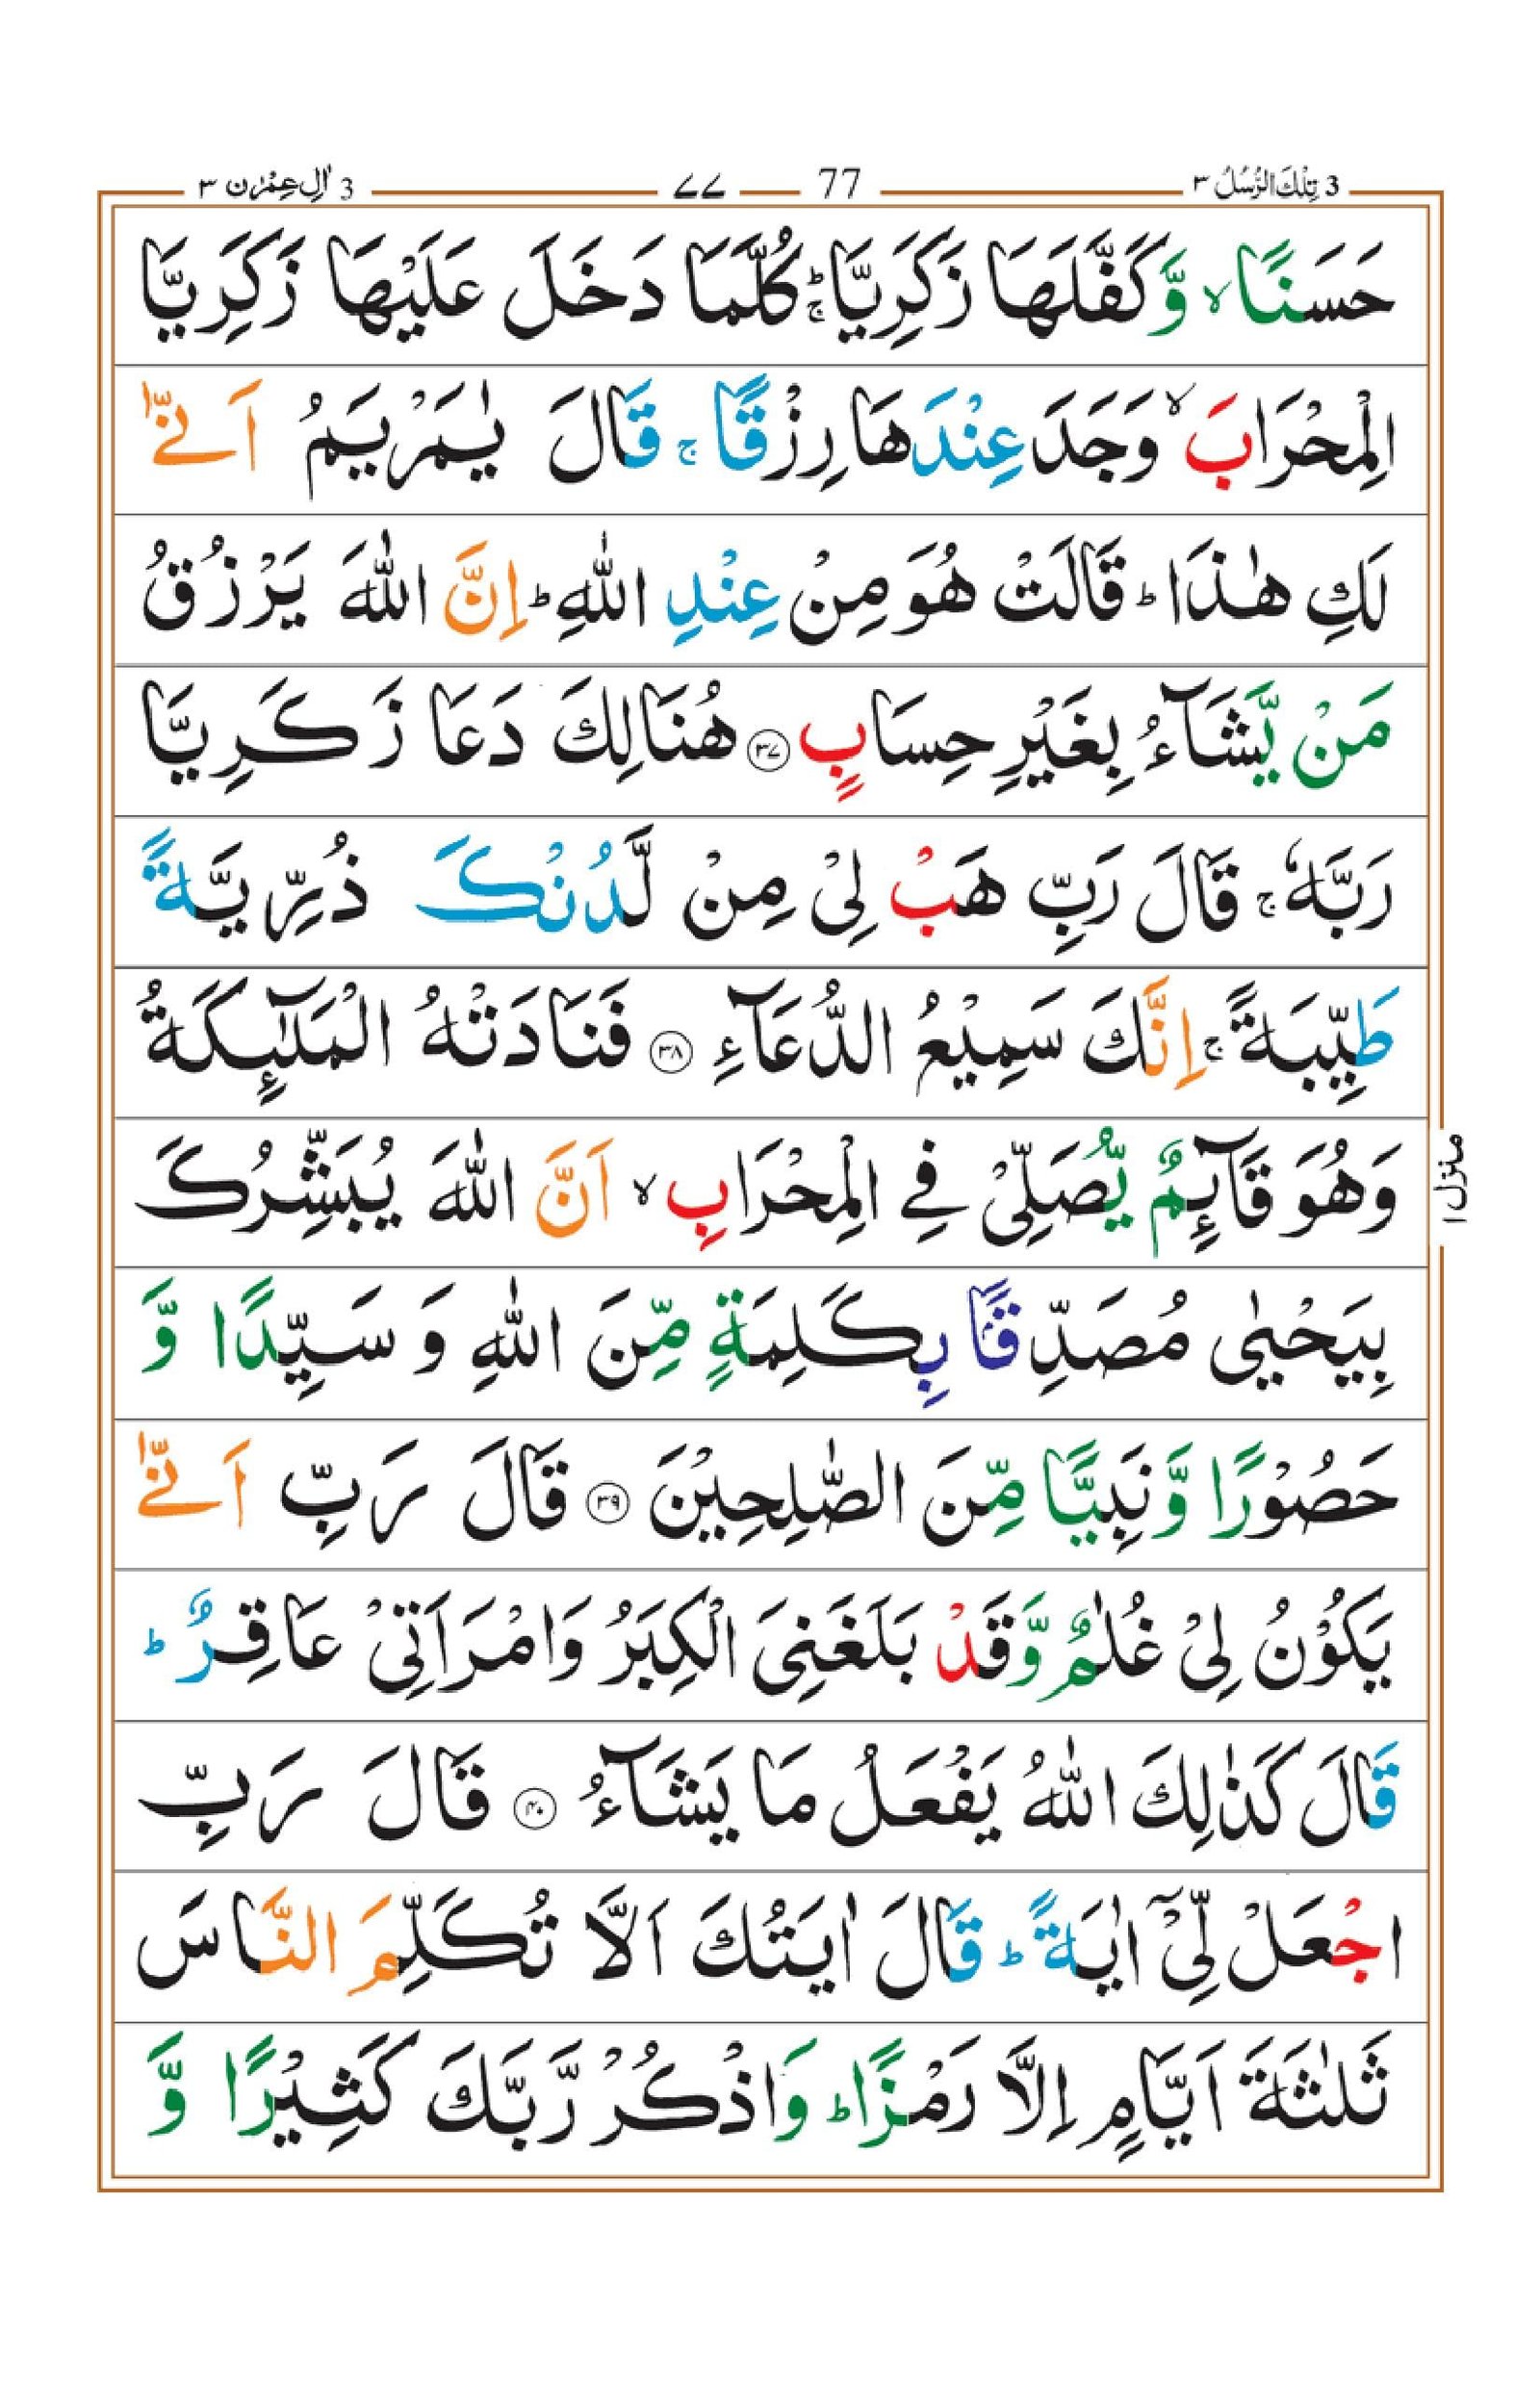 3 تِلْكَ الرُّسُلُ ٣ 77 ۷۷ 3 اٰلِ عِمْرٰن ٣
حَسَنًا ۙ وَّكَفَّلَهَا زَكَرِيَّا ؕۚ كُلَّمَا دَخَلَ عَلَيْهَا زَكَرِيَّا
الْمِحْرَابَ ۙ وَجَدَ عِنْدَهَا رِزْقًا ۚ قَالَ يٰمَرْيَمُ اَنّٰى
لَكِ هٰذَا ؕ قَالَتْ هُوَ مِنْ عِنْدِ اللّٰهِ ؕ اِنَّ اللّٰهَ يَرْزُقُ
مَنْ يَّشَآءُ بِغَيْرِ حِسَابٍ ۝۳۷ هُنَالِكَ دَعَا زَكَرِيَّا
رَبَّهٗ ۚ قَالَ رَبِّ هَبْ لِىْ مِنْ لَّدُنْكَ ذُرِّيَّةً
طَيِّبَةً ۚ اِنَّكَ سَمِيْعُ الدُّعَآءِ ۝۳۸ فَنَادَتْهُ الْمَلٰٓئِكَةُ
وَهُوَ قَآئِمٌ يُّصَلِّىْ فِى الْمِحْرَابِ ۙ اَنَّ اللّٰهَ يُبَشِّرُكَ
بِيَحْيٰى مُصَدِّقًۢا بِكَلِمَةٍ مِّنَ اللّٰهِ وَ سَيِّدًا وَّ
حَصُوْرًا وَّنَبِيًّا مِّنَ الصّٰلِحِيْنَ ۝۳۹ قَالَ رَبِّ اَنّٰى
يَكُوْنُ لِىْ غُلٰمٌ وَّقَدْ بَلَغَنِىَ الْكِبَرُ وَامْرَاَتِىْ عَاقِرٌ ؕ
قَالَ كَذٰلِكَ اللّٰهُ يَفْعَلُ مَا يَشَآءُ ۝۴۰ قَالَ رَبِّ
اجْعَلْ لِّىْٓ اٰيَةً ؕ قَالَ اٰيَتُكَ اَلَّا تُكَلِّمَ النَّاسَ
ثَلٰثَةَ اَيَّامٍ اِلَّا رَمْزًا ؕ وَاذْكُرْ رَّبَّكَ كَثِيْرًا وَّ
منزل ۱